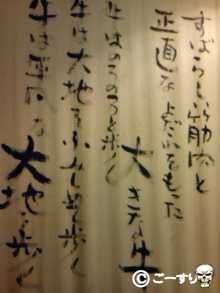 すばらしい筋肉と
正直なよだれをもった
大きな牛
牛はのそのそと歩く
牛は大地をふみしめて歩く
牛は平凡な大地を歩く
© ごーすり